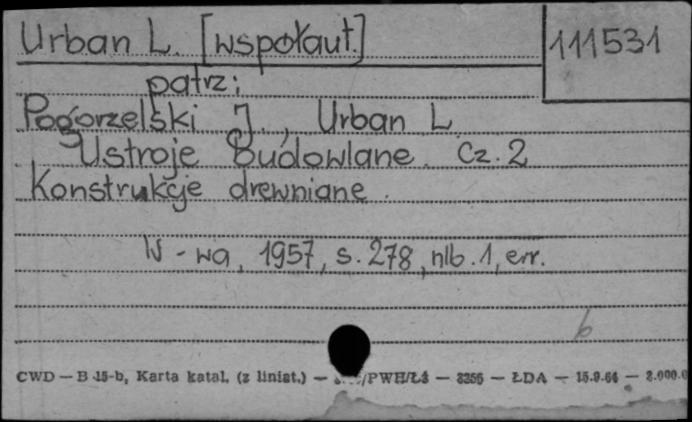 Urban L. [współaut.] 111531
patrz:
Pogorzelski J., Urban L
Ustroje Budowlane. Cz. 2
Konstrukcje drewniane.
W-wa, 1957, s. 278, nlb. 1, err.
b
CWD — B 15-b, Karta katal. (z liniat.) — /PWH/Łż — 3256 — ŁDA — 15.9.64 — 2.000.0